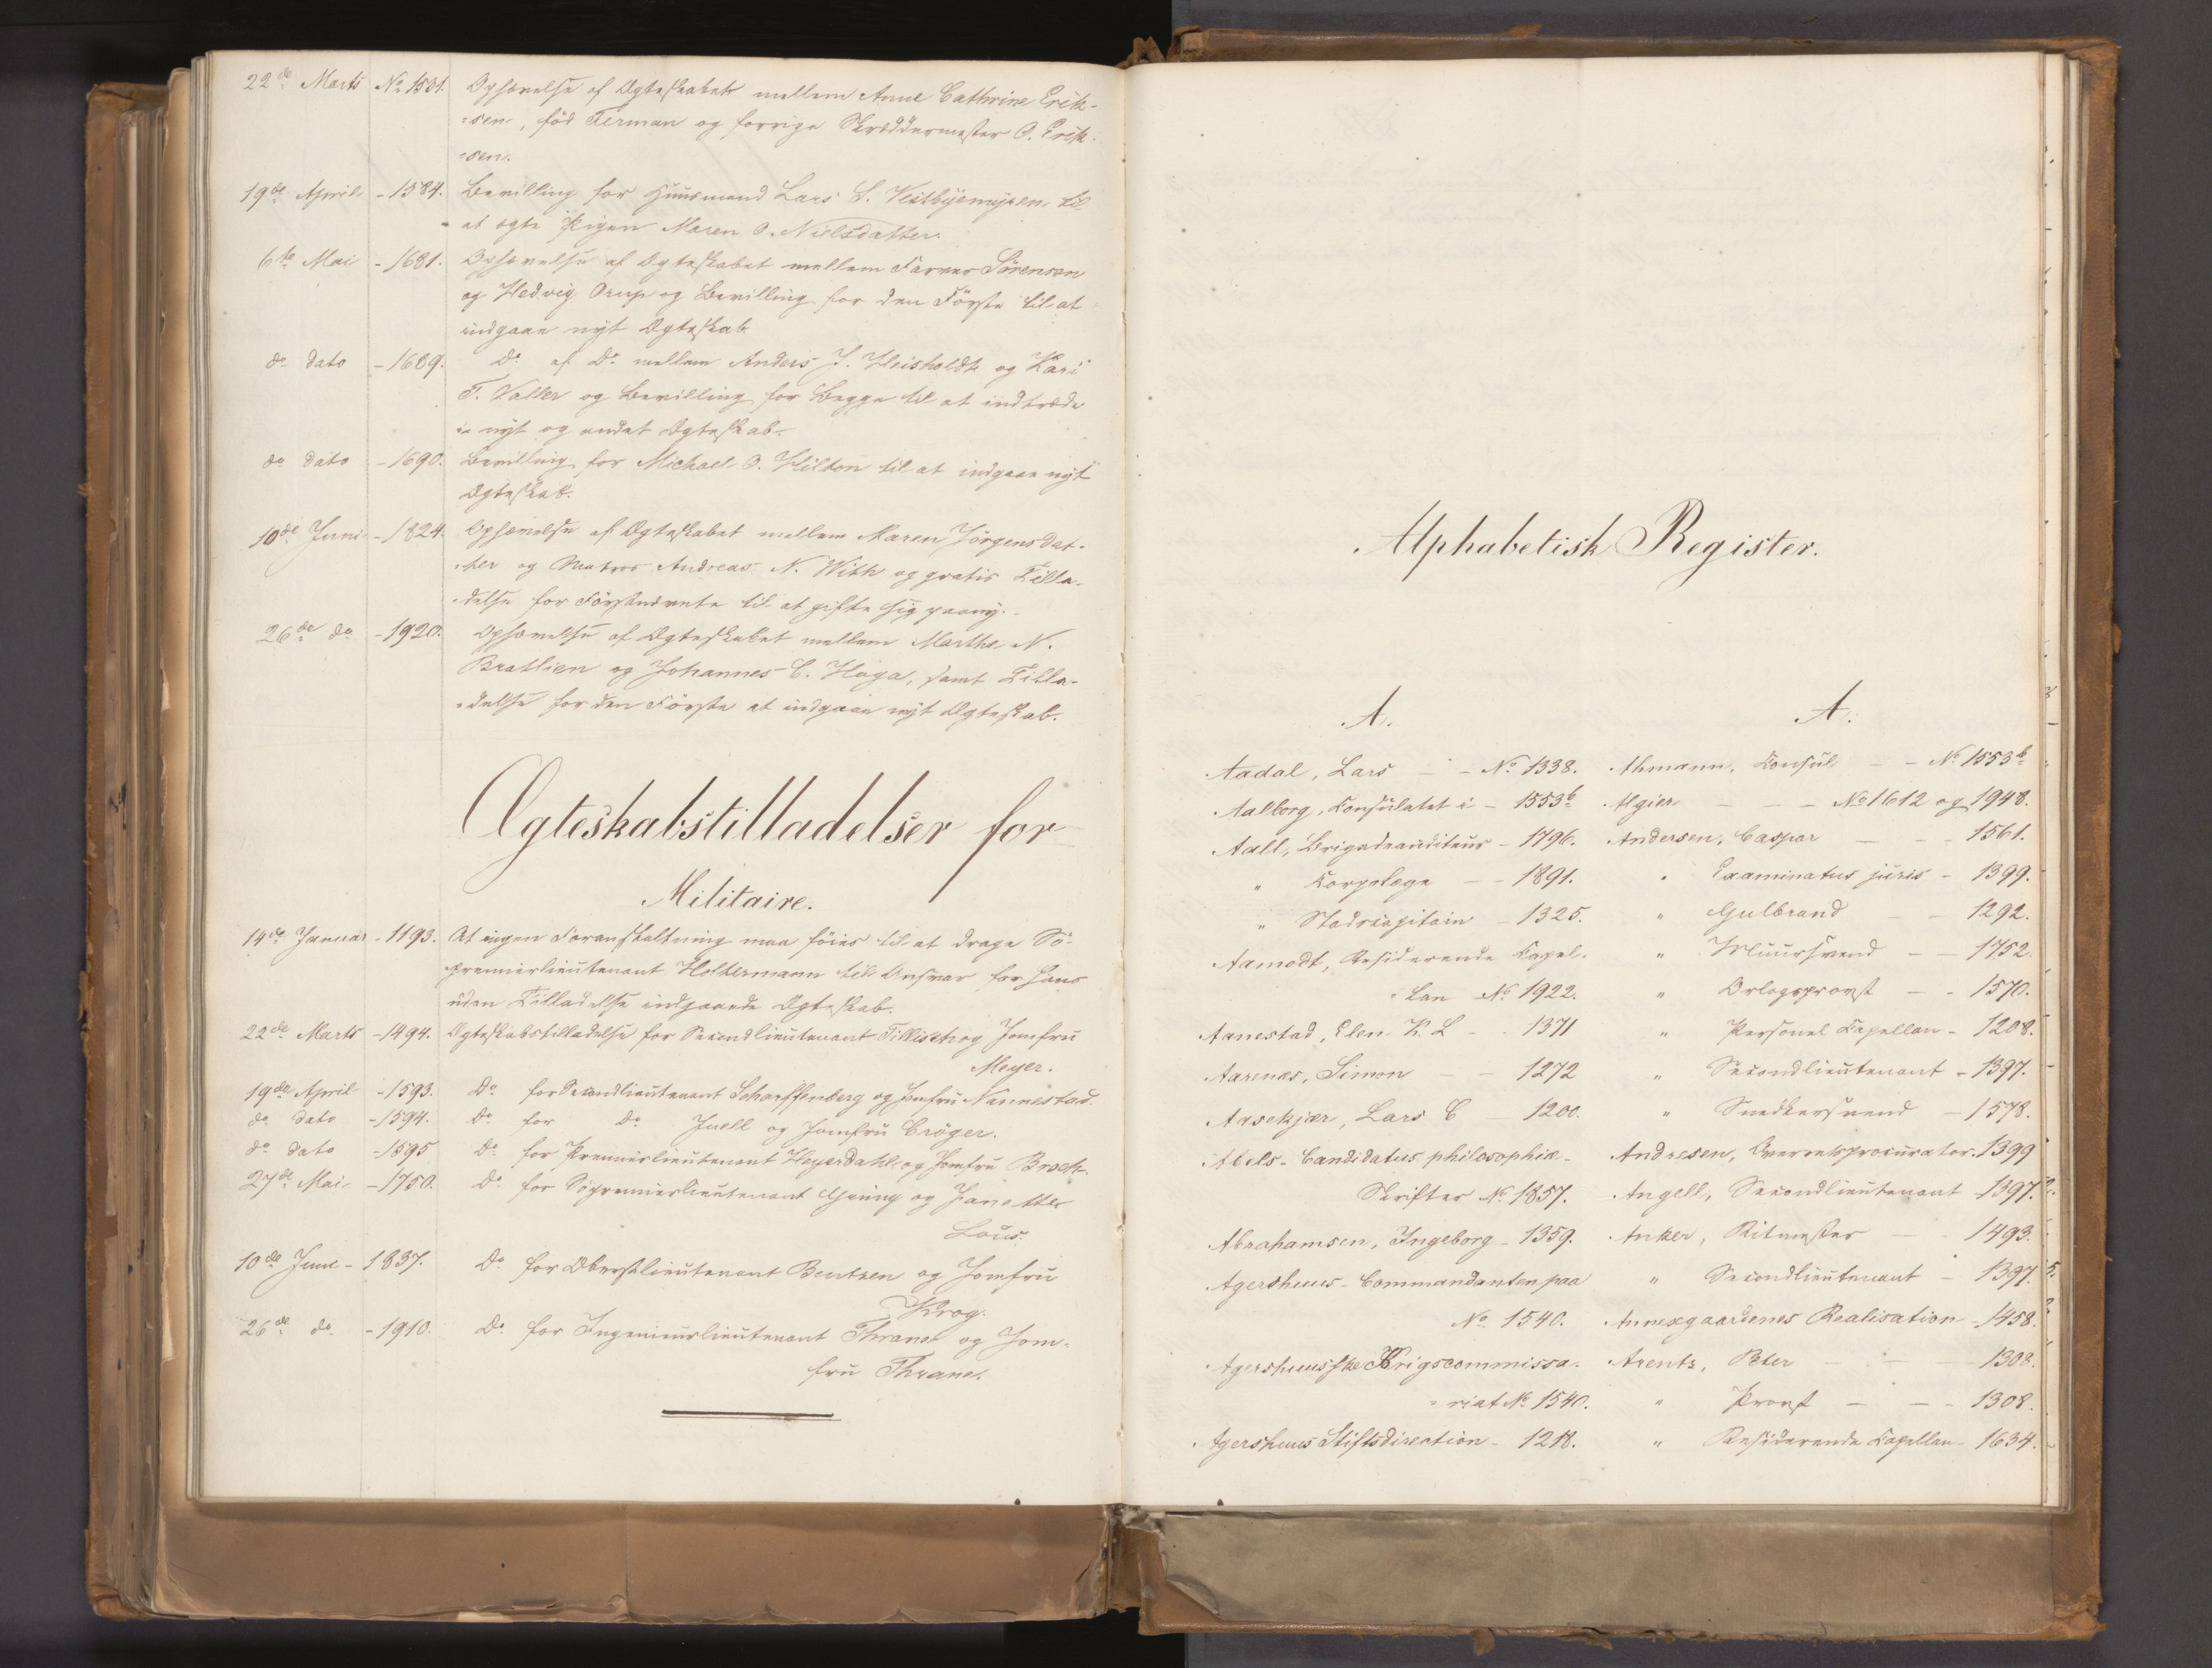 22de Marts No 1501. Ophævelse af Ægteskabet mellem Anne Cathrine Erik-
=sen, föd Ferman og forrige Skræddermester O. Erik-
=sen.
19de April - 1584. Bevilling for Huusmand Lars S. Vestbyemyren til
at ægte Pigen Maren O. Nielsdatter.
6te Mai - 1681. Ophævelse af Ægteskabet mellem Farver Sörensen
og Hedvig Orup og Bevilling for den Förste til at
indgaae nyt Ægteskab.
do dato - 1689. Do af Do mellem Anders J. Heisholdt og Kari
T. Valler og Bevilling for Begge til at indtræde
i nyt og andet Ægteskab.
do dato - 1690. Bevilling for Michael O. Hilton til at indgaae nyt
Ægteskab.
10de Juni - 1824. Ophævelse af Ægteskabet mellem Maren Jörgensdat-
=ter og Matros Andreas N. With og gratis Tilla-
=delse for Förstnævnte til at gifte sig paany.
26de do - 1920. Ophævelse af Ægteskabet mellem Marthe N.
Bratlien og Johannes C. Haga, samt Tilla-
=delse for den Förste at indgaae nyt Ægteskab.
Ægteskabstilladelser for
Militaire.
14de Januar - 1193. At ingen Foranstaltning maa föies til at drage Sö-
premierlieutenant Holtermann til Ansvar for hans
uden Tilladelse indgaaede Ægteskab.
22de Marts - 1494. Ægteskabstilladelse for Secondlieutenant Tillisch og Jomfru
Meyer.
19de April - 1593. Do for Secondlieutenant Scharffenberg og Jomfru Nannestad.
do dato - 1594. Do for Do Juell og Jomfru Cröger.
do dato - 1595 Do for Premierlieutenant Heyerdahl og Jomfru Broch.
27de Mai - 1750. Do for Söpremierlieutenant Gjeüng og Janette
Lous.
10de Juni - 1837. Do for Oberstlieutenant Bentzen og Jomfru
Krog.
26de do - 1910. Do for Ingenieurlieutenant Thrane og Jom-
fru Thrane.
Alphabetisk Register.
A.
Aadal, Lars - - No 1338.
Aalborg, Consulatet i - 1553b
Aall, Brigadeauditeur - 1796.
" Corpslæge - - 1891.
" Stadscapitain - 1325.
Aamodt, Residerende Capel-
=lan No 1922.
Aanestad, Elen K. L - - 1371
Aarenæs, Simon - - 1272
Aasekjær, Lars C - 1200.
Abels - Candidatus philosophiæ -
Skrifter No 1857.
Abrahamsen, Ingeborg - 1359.
Agershuus - Commandanten paa
No 1540.
Agershuusske Krigscommissa-
=riat No 1540.
Agershuus Stiftsdirection - 1218.
A.
Ahmann, Consul - - No 1553b
Algier - - - No 1612 og 1948.
Andersen, Caspar - - 1561.
" Examinatus juris - 1399.
" Gulbrand - - 1292.
" Muursvend - - 1752.
" Orlogsprovst - - 1570.
" Personel Capellan - 1208.
" Secondlieutenant - 1397.
" Snedkersvend - 1578.
Andresen, Overretsprocurator - 1399
Angell, Secondlieutenant - 1397.
Anker, Ritmester - - 1493.
" Secondlieutenant - 1397.
Annexgaardenes Realisation - 1458.
Arentz, Peter - - 1308.
" Provst - - - 1308.
" Residerende Capellan - 1634.